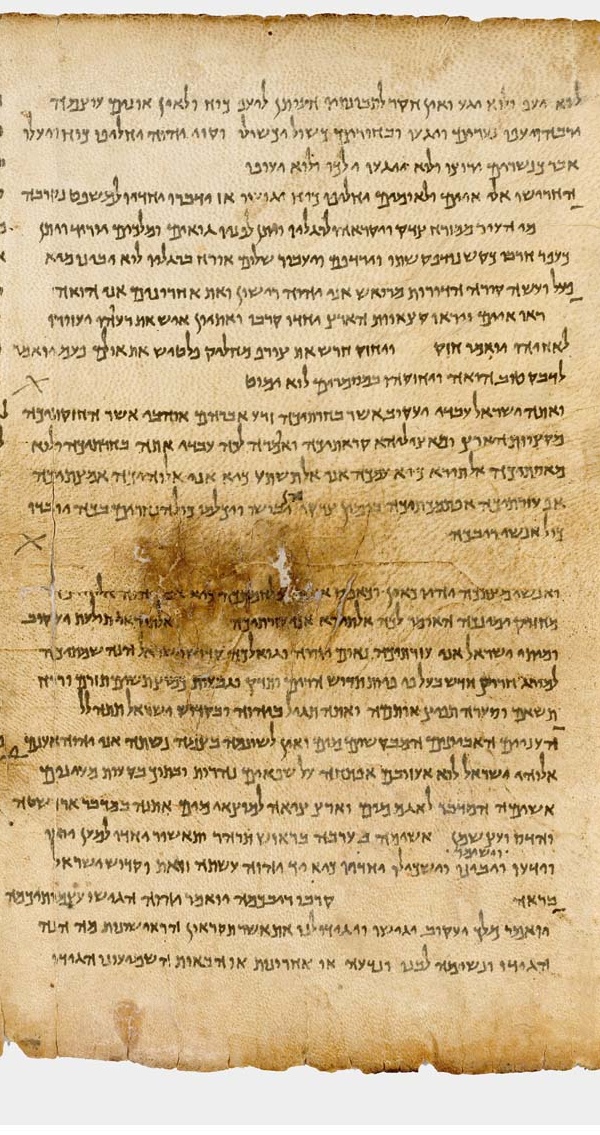 לוא יעף ולוא יגע ואין חקר לתבונתיו הנותן ליעף כוח ולאין אונים עוצמה
ירבה ויעפו נערים ויגעו ובחורים כשול יכשולו וקוי יהוה יחליפו כוח ויעלו
אבר כנשרים ירוצו ולוא ייגעו ילכו ולוא יעופו
החרישו אלי איים ולאומים יחליפו כוח יגושו אז ידברו יחדיו למשפט נקרבה
מי העיר ממזרח צדק ויקראהו לרגליו ויתן לפניו גואים ומלכים יוריד ויתן
כעפר חרבו כקש נדף קשתו וירדפם ויעבור שלום אורח ברגליו לוא יבינו מיא
פעל ועשה קורה הדורות מרואש אני יהוה רישון ואת אחרונים אני הואה
ראו איים ויראו קצאוות הארץ יחדו קרבו ואתיון איש את רעהו יעזורו
לאחיהו יואמר חזק ויחזק חרש את צורף מחליק פלטיש את אולם פעם יואמר
לדבק טוב הואה ויחזקהו במסמרים לוא ימוט
ואתה ישראל עבדי יעקוב אשר בחרתיכה זרע אברהם אוהבי אשר החזקתיכה
מקצוות הארץ ומאציליהא קראתיכה ואמרה לכה עבדי אתה בחרתיכה ולוא
מאסתיכה אל תירא כיא עמכה אני אל תשתע כיא אני אלוהיכה אמצתיכה
אף עזרתיכה אף תמכתיכה בימין צדקי הן יבושו ויכלמו כול הנחרים בכה יובדו
כול אנשי ריבכה
ואנשי מצותכה יהיו כאין וכאפס מלחמתכה כיא אני
מחזיק ימינכה האומר לכה אל תירא אני עזרתיכה אל תיראי תולעת יעקוב
ומיתי ישראל אני עזרתיכה נאום יהוה וגואלכה קדוש ישראל הנה שמתיכה
למורג חרוץ חדש בעל פיפיות תדוש הרים ותדוק וגבעות כמץ תשים תזרם ורוח
תשאם וסערה תפיץ אותמה ואתה תגיל ביהוה ובקדוש ישראל תתהלל
העניים האביונים המבקשים מים ואין לשונמה בצמה נשתה אני יהוה אענם
אלוהי ישראל לוא אעזובם אפתחה על שפאים נהרות ובתוך בקעות מעינים
אשימה המדבר לאגם מים וארץ ציאה למוצאי מים אתנה במדבר ארז שטה
והדס ועץ שמן אשימה בערבה ברואש תהרהר ותאשור יחדו למען יראו
וישימו
וידעו ויבינו וישכילו יחדיו כיא יד יהוה עשתה זואת וקדוש ישראל
בראה קרבו ריבכמה יואמר יהוה הגישו עצמותיכמה
יואמר מלך יעקוב יגישו ויגידו לנו את אשר תקראינה הראישונות מה הנה
הגידו ונשימה לבנו ונדעה או אחרונות או הבאות השמיענו הגידו